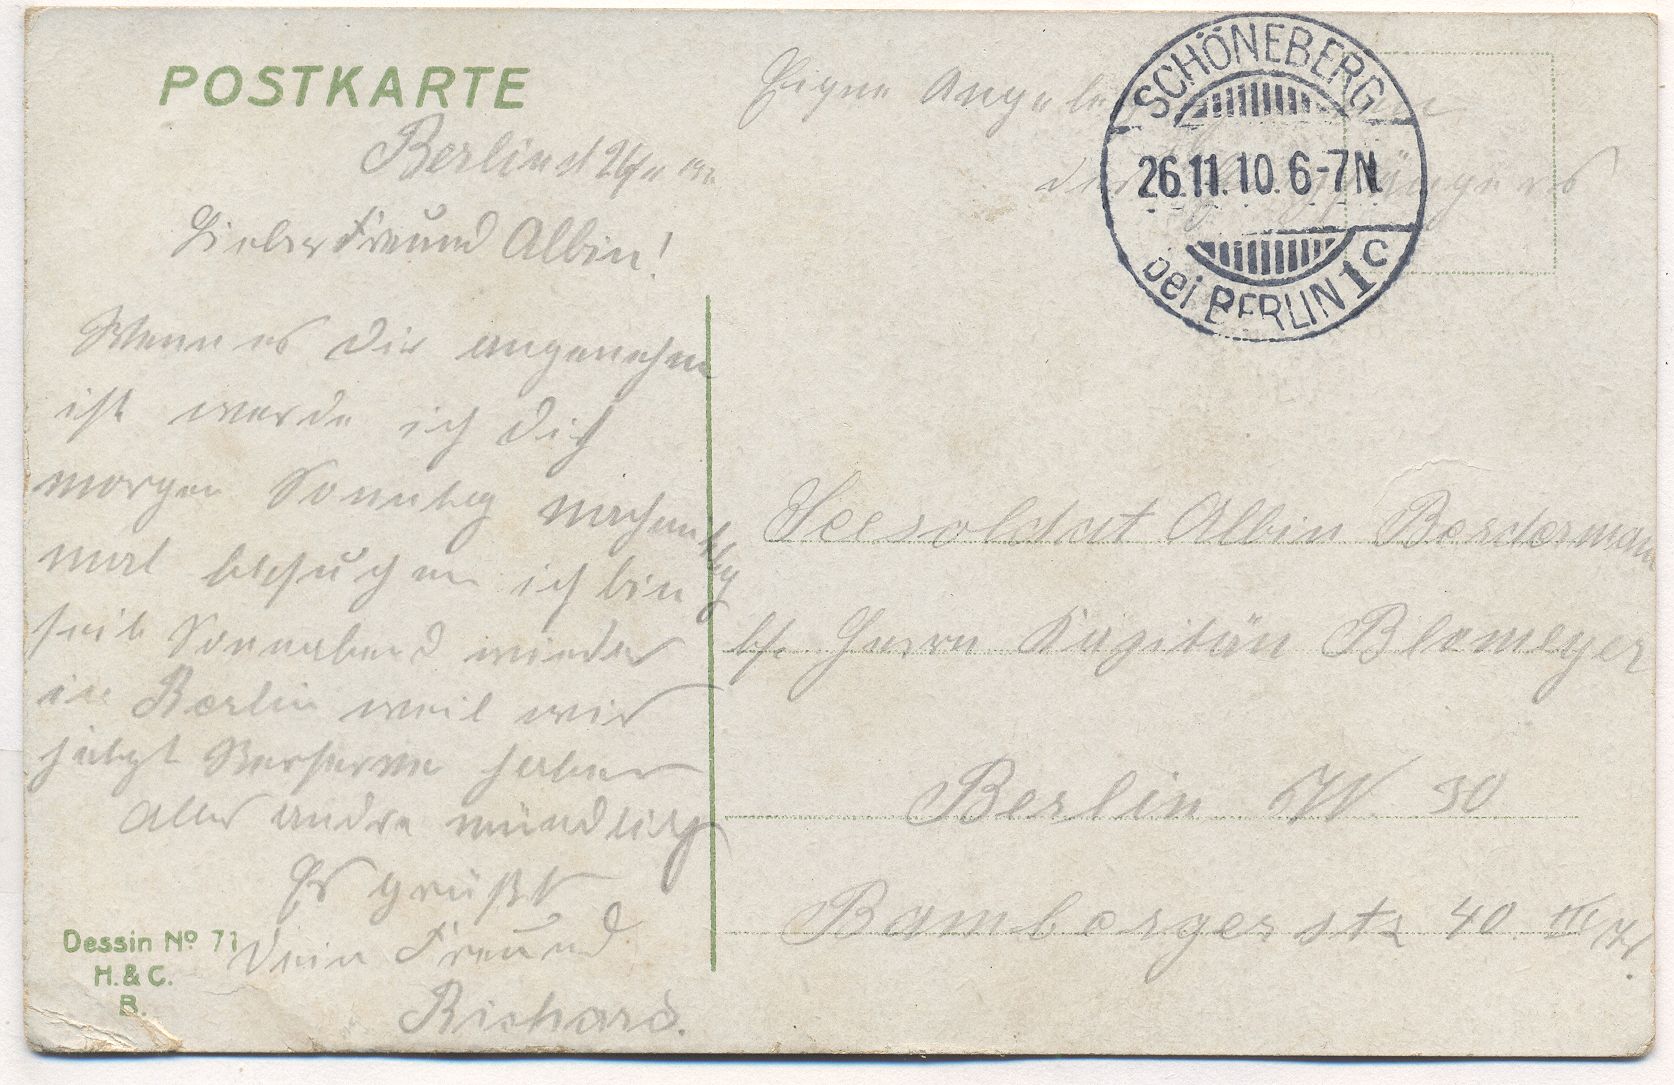 POSTKARTE
Berlin d 26/11
Lieber Freund Albin!
Wenn es dir angenehm
ist werde ich dich
morgen Sonntag nachmittag
mal besuchen ich bin
seit Sonnabend wieder
in Berlin weil wir
jetzt haben
Alles andre mündlich
Es grüßt
Dein Freund
Richard.
Dessin No 71
H. & C.
B.
Eigne Angele
des Empfängers
SCHÖNEBERG
26.11.10. 6-7N
bei BERLIN 1c
Seesoldat Albin
b/. Herrn Kapitän Blomeyer
Berlin W. 30
Bambergerstr 40. III